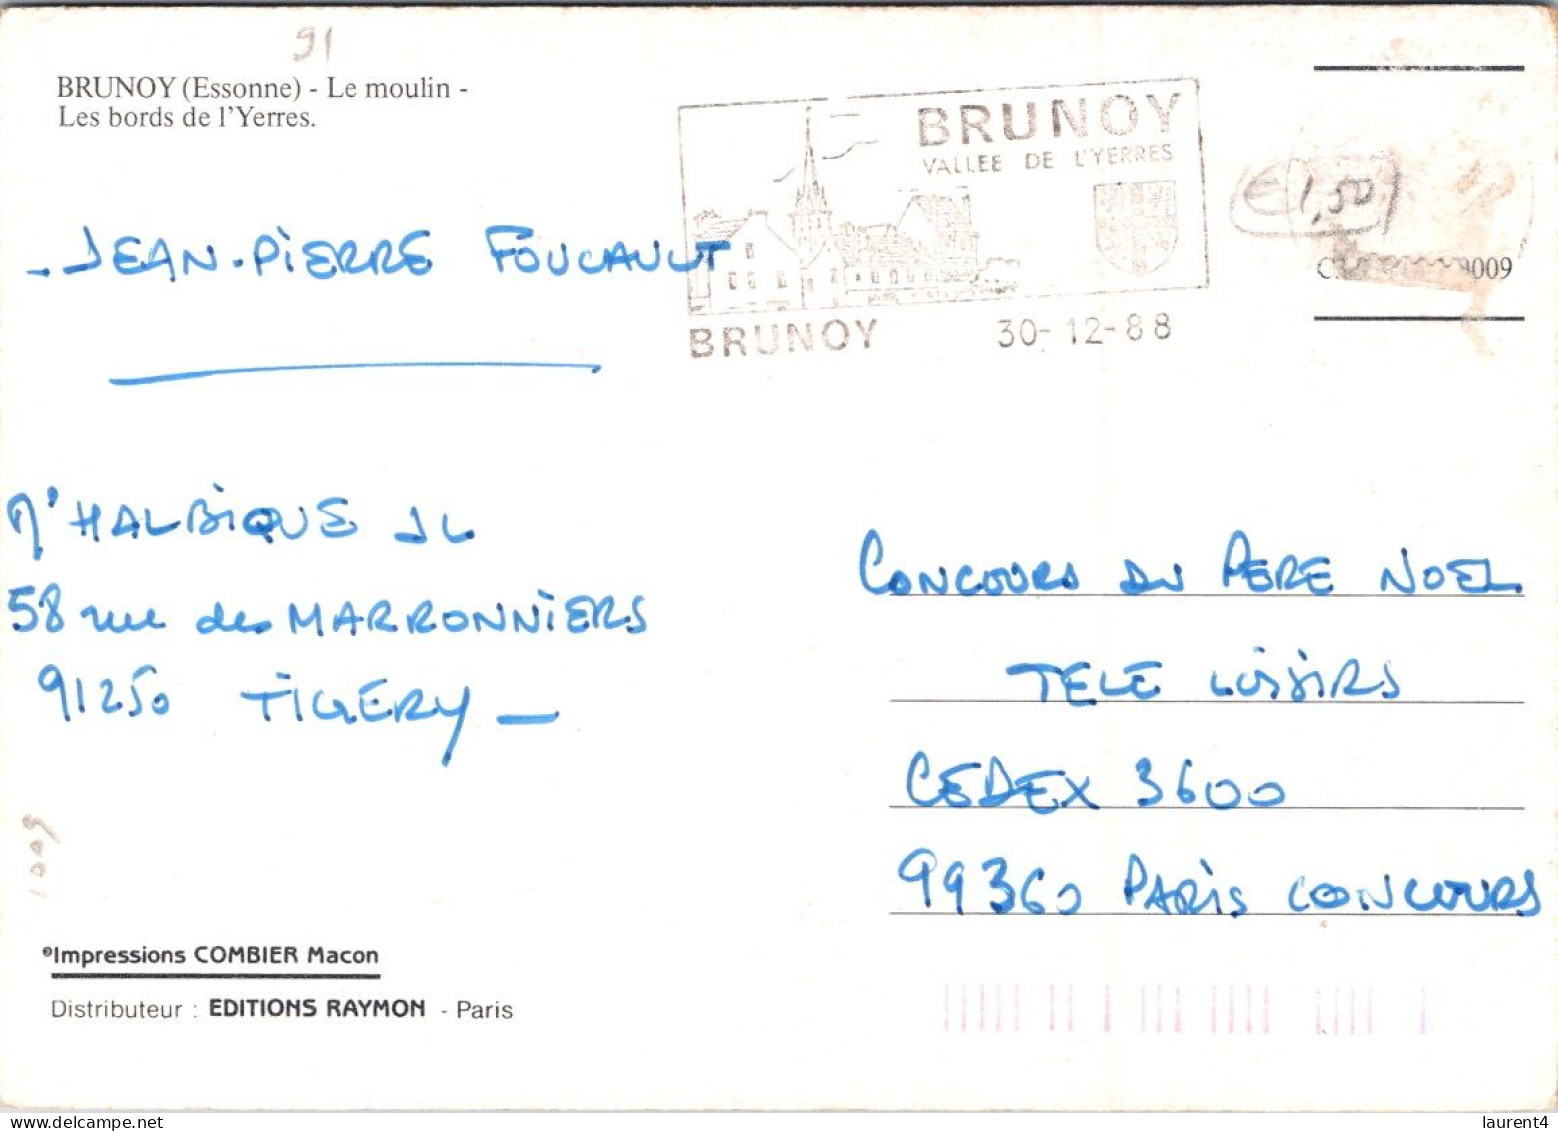 91
BRUNOY (Essonne) - Le moulin -
Les bords de l'Yerres.
BRUNOY
VALLEE DE L'YERRES
BRUNOY 30-12-88
€ 1,50
9009
- JEAN-PIERRE FOUCAULT
Mr HALBIQUE JL
58 rue des MARRONNIERS
91250 TIGERY -
CONCOURS DU PERE NOEL
TELE LOISIRS
CEDEX 3600
99360 PARIS CONCOURS
1009
Impressions COMBIER Macon
Distributeur : EDITIONS RAYMON - Paris
laurent4